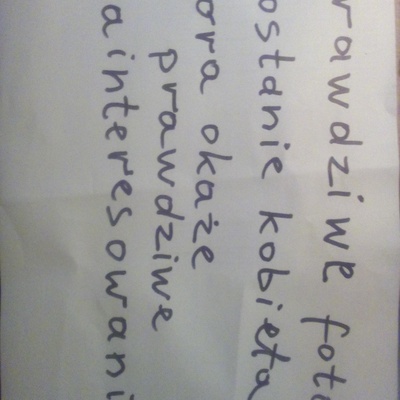 rawdziwe foto
ostanie kobieta
ora okaże
prawdziwe
ainteresowani